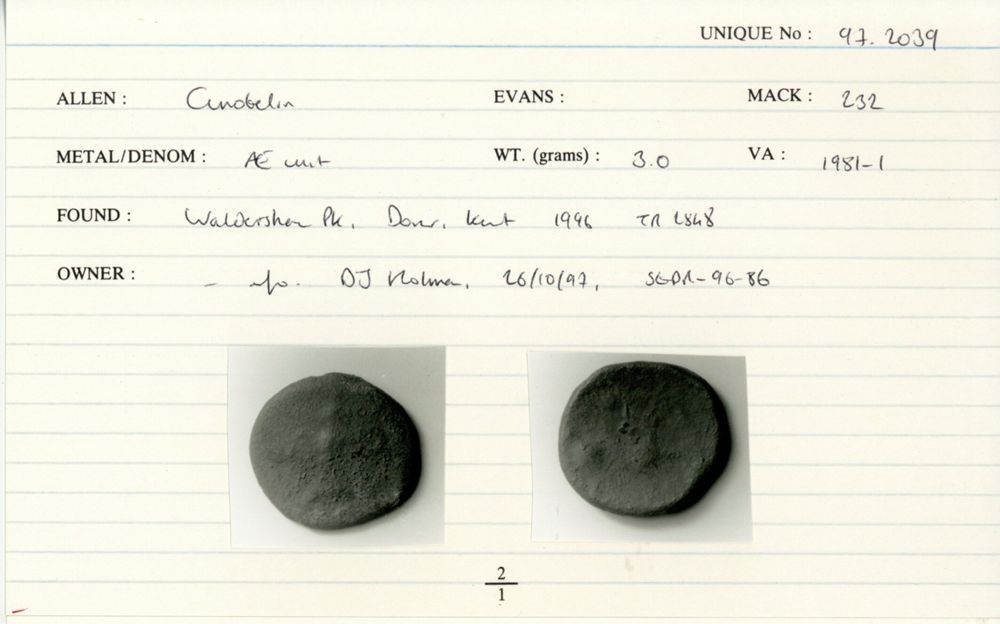 UNIQUE No : 97. 2039
ALLEN : Cunobelin EVANS : MACK : 232
METAL/DENOM : Æ unit WT. (grams) : 3.0 VA : 1981-1
FOUND : Waldershare Pk, Dover, Kent 1996 TR 2848
OWNER : - info. DJ Holman, 26/10/97, SEDR-96-86
2
1